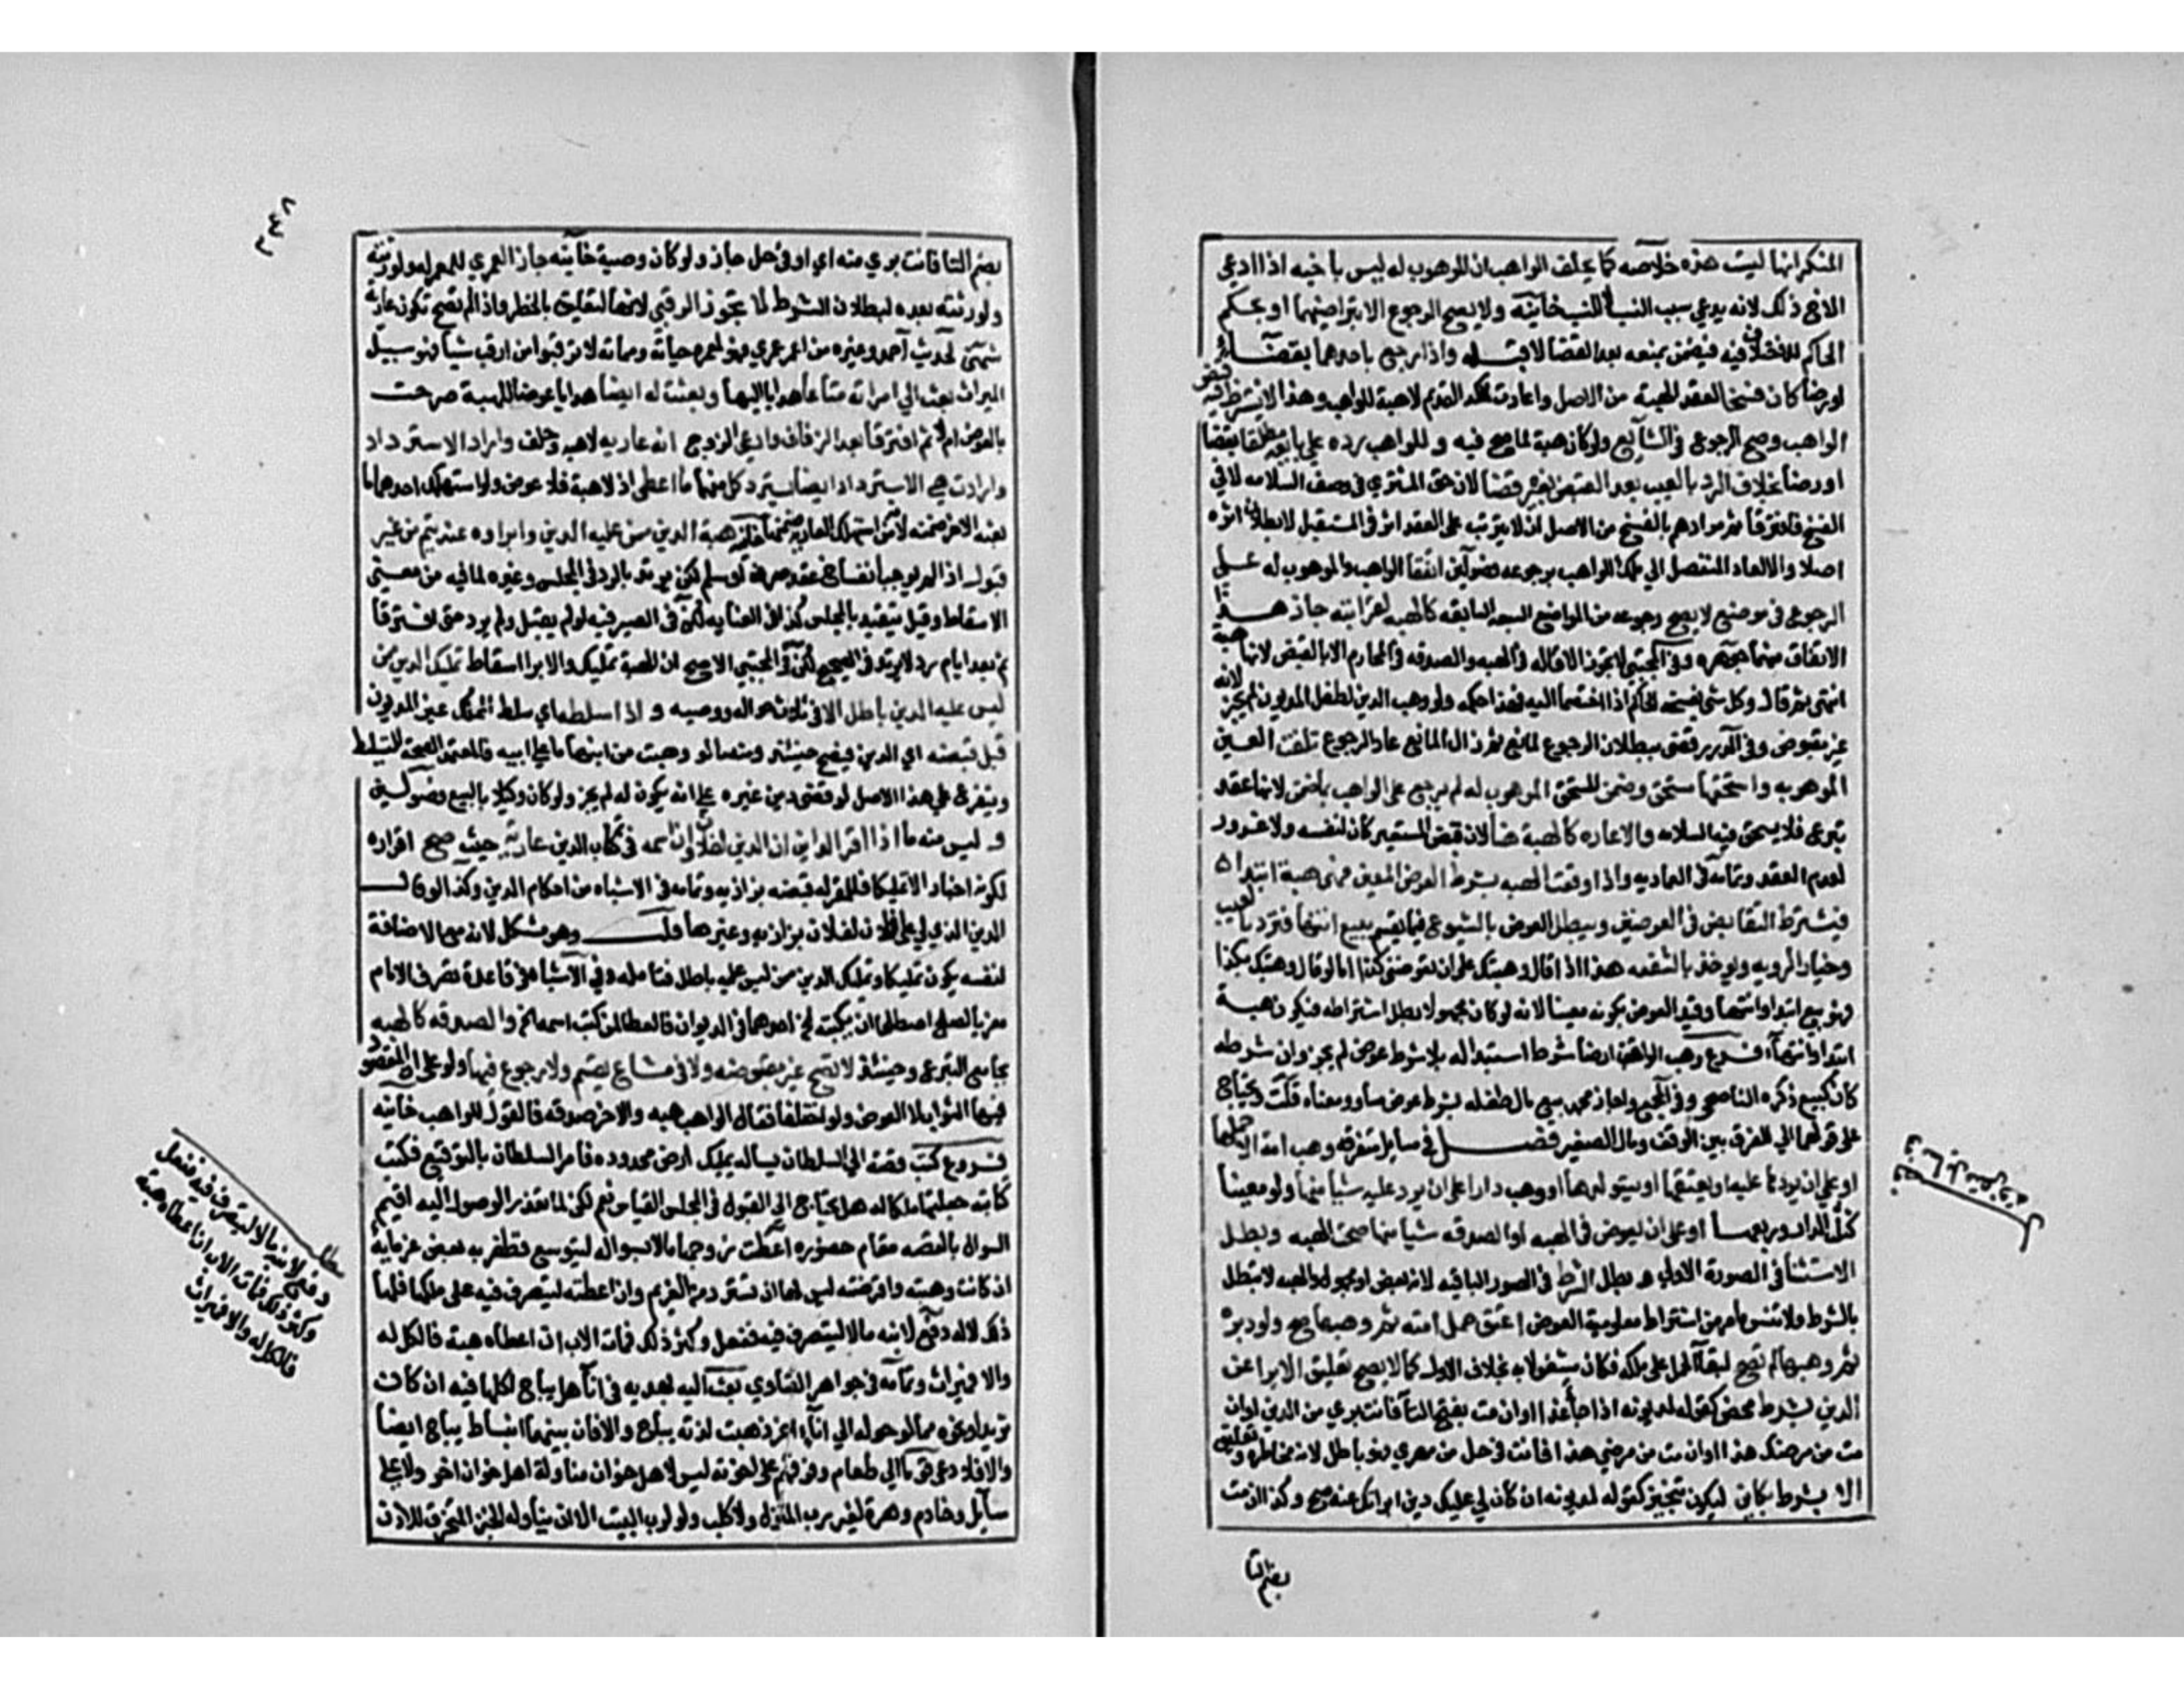 المنكر انها ليست هذه خلاصه كما يحلف الواهب ان الموهوب له ليس باخيه اذا ادعي
الاخ ذلك لانه يدعي سبب النسب لا النسب خانيه ولا يصح الرجوع الا بتراضيهما او بحكم
الحاكم للاختلاف فيه فيضمن بمنعه بعد القضا لا قبله واذا رجع باحدهما بقضا
او رضا كان فسخا لعقد الهبة من الاصل واعادة لملكه القديم لا هبة للواهب فلهذا لا يشترط فيه قبض
الواهب وصح الرجوع في الشايع ولو كان هبة لما صح فيه وللواهب رده علي بايعه مطلقا بقضا
او رضا بخلاف الرد بالعيب بعد القبض بغير قضا لان حق المشتري في وصف السلامه لا في
الفسخ فافترقا ثم مرادهم بالفسخ من الاصل ان لا يترتب على العقد اثر في المستقبل لا بطلان اثره
اصلا والا لعاد المنفصل الي ملك الواهب برجوعه فصولين اتفقا الواهب والموهوب له علي
الرجوع في موضع لا يصح رجوعه من المواضع السبعه السابقه كالهبه لقرابته جاز هذا
الاتفاق منهما جوهره وفي المجتبي لا تجوز الاقاله في الهبه والصدقه في المحارم الا بالقبض لانها هبة
انتهى ثم قال وكل شي يفسخه الحاكم اذا اختصما اليه فهذا حكمه ولو وهب الدين لطفل المديون لم يجز لانه
غير مقبوض وفي الدرر قضى ببطلان الرجوع لمانع ثم زال المانع عاد الرجوع تلفت العين
الموهوبه واستحقها مستحق وضمن المستحق الموهوب له لم يرجع على الواهب بما ضمن لانها عقد
تبرع فلا يستحق فيه السلامه والاعاره كالهبة هنا لان قبض المستعير كان لنفسه ولا غرور
لعدم العقد وتمامه في العماديه واذا وقعت الهبه بشرط العوض المعين فهى هبة ابتدا
فيشترط التقابض في العوضين ويبطل العوض بالشيوع فيما يقسم بيع انتها فترد بالعيب
وخيار الرويه ويوخذ بالشفعه هذا اذا قال وهبتك على ان تعوضني كذا اما لو قال وهبتك بكذا
فهو بيع ابتدا وانتها وقيد العوض بكونه معينا لانه لو كان مجهولا بطل اشتراطه فيكون هبة
ابتدا وانتها فروع وهب الواقف ارضا شرط استبداله بلا شرط عوض لم يجز وان شرطه
كان كبيع ذكره الناصحي وفي المجمع واجاز محمد بيع مال طفله بشرط عوض مساو ومنعاه قلت ويحتاج
على قولهما الي الفرق بين الوقف ومال الصغير فصل في مسايل متفرقه وهب امة الا حملها
او على ان يردها عليه او يعتقها او يستولدها او وهب دارا على ان يرد عليه شيا منها ولو معينا
كثلث الدار وربعها او على ان يعوض في الهبه او الصدقه شيا منها صحت الهبه وبطل
الاستثنا في الصورة الاولى وبطل الشرط في الصور الباقيه لانه بعض او مجهول والهبه لا تبطل
بالشرط ولا تنس ما مر من اشتراط معلومية العوض اعتق حمل امته ثم وهبها صح ولو دبره
ثم وهبها لم تصح لبقا الحمل على ملكه فكان مشغولا به بخلاف الاول كما لا يصح تعليق الابرا عن
الدين بشرط محض كقوله لمديونه اذا جا غدا او ان مت بفتح التا فانت بري من الدين او ان
مت من مرضك هذا او ان مت من مرضي هذا فانت في حل من مهري فهو باطل لانه مخاطره وتعليق
الا بشرط كاين ليكون تنجيزا كقوله لمديونه ان كان لي عليك دين ابراتك عنه صح وكذا ان مت
بضم التا
فصل في مسايل متفرقه
٢٣٤
بضم التا فانت بري منه اي او في حل جاز ولو كان وصية خانيه جاز العمري للمعمر له ولورثته
ولورثته بعده لبطلان الشرط لا تجوز الرقبي لانها تعليق بالخطر واذا لم تصح تكون عارية
شمني لحديث احمد وغيره من اعمر عمري فهو لمعمره حياته ومماته لا ترقبوا من ارقب شيا فهو سبيل
الميراث بعث الي امراته متاعا هدايا اليها وبعثت له ايضا هدايا عوضا للهبة صرحت
بالعوض ام لا ثم افترقا بعد الزفاف وادعي الزوج انه عاريه لا هبه وحلف واراد الاسترداد
وارادت هي الاسترداد ايضا يسترد كل منهما ما اعطى اذ لا هبة فلا عوض ولو استهلك احدهما ما
بعثه الاخر ضمنه لان من استهلك العاريه ضمنها خانيه هبة الدين ممن عليه الدين وابراوه عنه يتم من غير
قبول اذا لم يوجب انفساخ عقد صرف او سلم لكن يرتد بالرد في المجلس وغيره لما فيه من معنى
الاسقاط وقيل يتقيد بالمجلس كذا في العنايه لكن في الصيرفيه لو لم يقبل ولم يرد حتى افترقا
ثم بعد ايام رد لا يرتد في الصحيح لكن في المجتبي الاصح ان الهبة تمليك والابرا اسقاط تمليك الدين ممن
ليس عليه الدين باطل الا في ثلاث حواله ووصيه واذا سلطه اي سلط المملك غير المديون
على قبضه اي الدين فيصح حينئذ ومنه ما لو وهبت من ابنها ما على ابيه فالمعتمد الصحة للتسليط
ويتفرع على هذا الاصل لو قضى دين غيره على ان يكون له لم يجز ولو كان وكيلا بالبيع فصولين
وليس منه ما اذا اقر الداين ان الدين لفلان وان اسمه في كتاب الدين عارية حيث صح اقراره
لكونه اخبارا لا تمليكا فللمقر له قبضه بزازيه وتمامه في الاشباه من احكام الدين وكذا لو قال
الدين الذي لي على فلان لفلان بزازيه وغيرها قلت وهو مشكل لانه مع الاضافة
لنفسه يكون تمليكا وتمليك الدين ممن ليس عليه باطل فتامله وفي الاشباه في قاعدة تصرف الامام
معزيا لصلح اصطلحا ان يكتب اسم احدهما في الديوان فالعطا لمن كتب اسمه الخ والصدقه كالهبه
بجامع التبرع وحينئذ لا تصح غير مقبوضه ولا في مشاع يقسم ولا رجوع فيها ولو على غني لان المقصود
فيها الثواب لا العوض ولو اختلفا فقال الواهب هبه والاخر صدقه فالقول للواهب خانيه
فروع كتب قصة الي السلطان يساله تمليك ارض محدوده فامر السلطان بالتوقيع فكتب
كاتبه جعلتها ملكا له هل يحتاج الي القبول في المجلس القياس نعم لكن لما تعذر الوصول اليه اقيم
السوال بالقصه مقام حضوره اعطت زوجها مالا بسواله ليتوسع فظفر به بعض غرمايه
ان كانت وهبته او اقرضته ليس لها ان تسترد من الغريم وان اعطته ليتصرف فيه على ملكها فلها
ذلك لا له دفع لابنه مالا ليتصرف فيه ففعل وكثر ذلك فمات الاب ان اعطاه هبة فالكل له
والا فميراث وتمامه في جواهر الفتاوي بعث اليه بهديه في انا هل يباح اكلها فيه ان كانت
ثريدا ونحوه مما لو حوله الي انا اخر ذهبت لذته يباح والا فان بينهما انبساط يباح ايضا
والا فلا دعي قوما الي طعام وفرقهم على اخونه ليس لاهل خوان مناولة اهل خوان اخر ولا اعطا
سايل وخادم وهرة لغير رب المنزل ولا كلب ولو لرب البيت الا ان يناوله الخبز المحترق للاذن
مطلب
دفع لابنه مالا ليتصرف فيه ففعل
وكثر ذلك فمات الاب ان اعطاه هبة
فالكل له والا فميراث